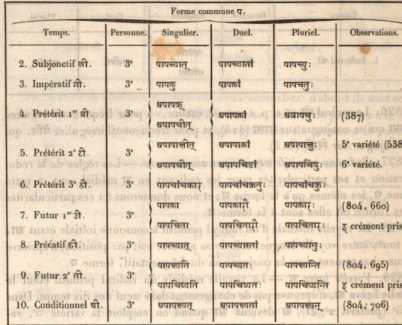 Forme commune प.
Temps. Personne. Singulier. Duel. Pluriel. Observations.
2. Subjonctif ली. 3ᵉ पापच्यात् पापच्यातां पापच्युः
3. Impératif लो. 3ᵉ पापक्तु पापक्तां पापचतुः
4. Prétérit 1ᵉʳ घी. 3ᵉ अपापक् अपापक्तां अपापचुः (387)
अपापचीत्
5. Prétérit 2ᵉ टी. 3ᵉ अपापाक्तां अपापाक्षुः 5ᵉ variété (538
अपापचीत् अपापचिष्टां अपापचिषुः 6ᵉ variété.
6. Prétérit 3ᵉ ठी. 3ᵉ पापचांचकार पापचांचक्रतुः पापचांचक्रुः
7. Futur 1ᵉʳ डी. 3ᵉ पापक्ता पापक्तारौ पापक्तारः (804, 660)
पापचिता पापचितारौ पापचितारः crément pris
8. Précatif ढी. 3ᵉ पापच्यात् पापच्यास्तां पापच्यासुः
9. Futur 2ᵉ ती. 3ᵉ पापक्ष्यति पापक्ष्यतः पापक्ष्यन्ति (804, 695)
पापचिष्यति पापचिष्यतः पापचिष्यन्ति crément pris
10. Conditionnel थी. 3ᵉ अपापक्ष्यत् अपापक्ष्यतां अपापक्ष्यन् (804, 706)